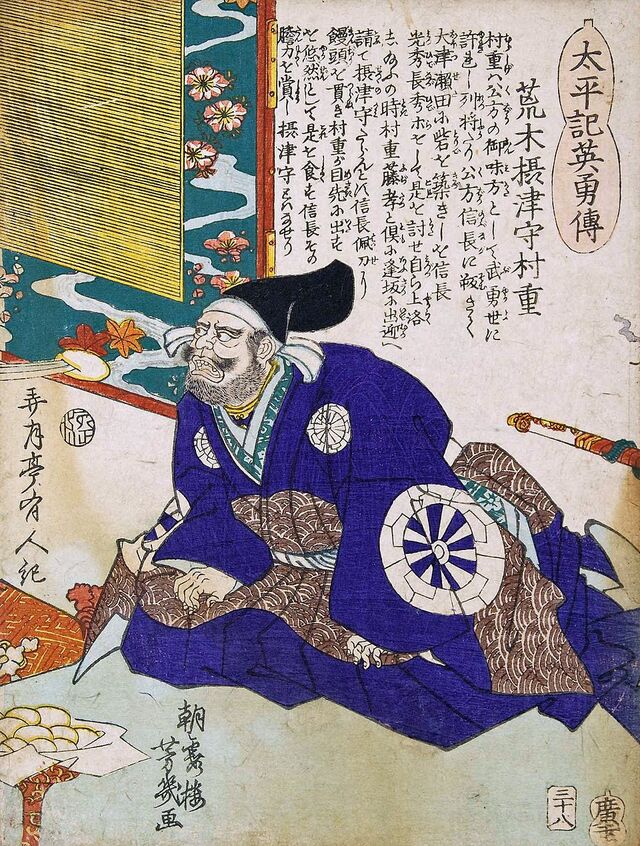 太平記英勇傳
荒木摂津守村重
村重ハ公方の御味方として武勇世に
公方信長に叛き
大津瀬田に砦を築きしを信長
光秀長秀ホをして是を討せ自ら上洛
の時村重藤孝と倶に逢坂に出迎へ
請て摂津守 信長佩刀
饅頭を貫き村重が目先に出すを
を悠然として是を食す信長その
膽力を賞し摂津守
弄月亭有人紀
朝霞楼
芳幾画
三十八
廣